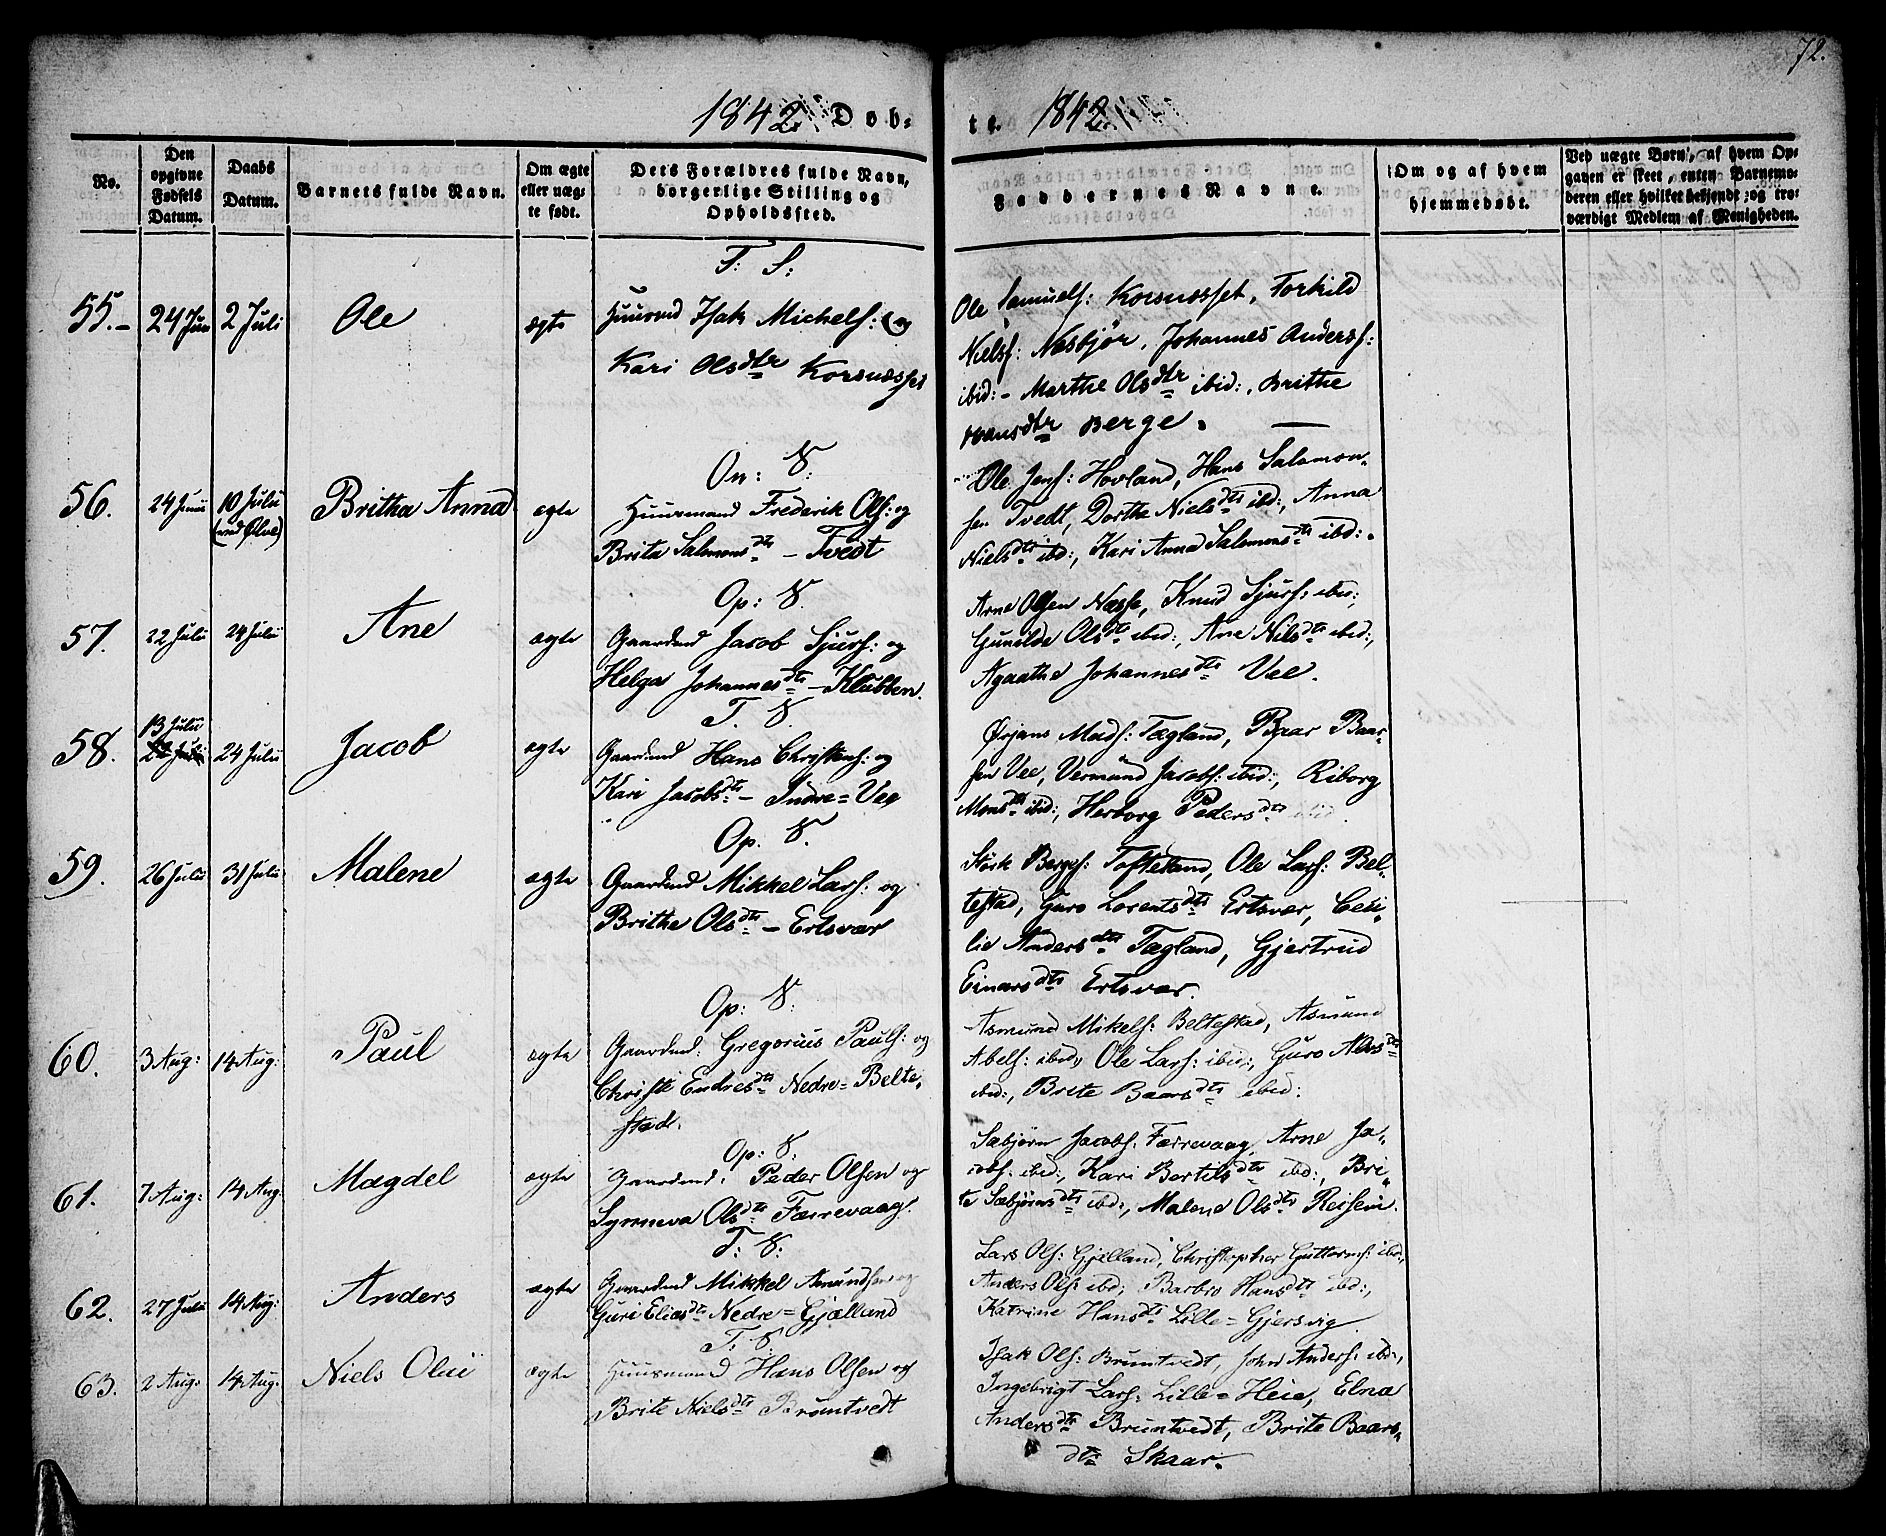 72.
1842. Døb-
te. 1842.
No.
Den
opgivne
Fødsels
Datum.
Daabs
Datum.
Barnets fulde Navn.
Om ægte
eller uæg-
te født.
Dets Forældres fulde Navn,
borgerlige Stilling og
Opholdssted.
Faddernes Navne.
Om og af hvem
hjemmedøbt.
Ved uægte Børn, af hvem Op-
gaven er skeet, enten Barnemo-
deren eller hvilket bekjendt og tro-
værdigt Medlem af Menigheden.
T: S:
55.- 24 Jun 2 Juli Ole ægte Huusmd Isak Michels: og
Kari Olsdtr Korsnæsset
Ole Samuels: Korsnæsset, Torkild
Niels: Nesbjør, Johannes Anders:
ibid:- Marthe Olsdtr ibid:, Brithe
Hansdtr Berge.
On: S:
56. 24 Juni 10 Julii
(ved Ølve) Britha Anna ægte Huusmand Frederik Ols: og
Brita Salmonsdtr - Tvedt
Ole Jens: Hovland, Hans Salomon-
sen Tvedt, Dorthe Nielsdtr ibd:, Anna
Nielsdtr ibd:, Kari Anna Salomonsdtr ibd:.
Op: S.
57. 22 Julii 24 Julii Ane ægte Gaardmd Jacob Sjurs: og
Helga Johannesdtr - Klubben.
Arne Olsen Næsse, Knud Sjurs: ibid:,
Gunilde Olsdtr ibid:, Ane Nilsdtr ibid:,
Agaathe Johannesdtr Vee.
T. S.
58. 13 Julii
24 Julii Jacob ægte Gaardmd Hans Christens: og
Kari Jacobsdtr - Indre=Vee
Ørjans Mads: Tægland, Baar Baar-
sen Vee, Vermund Jacobs: ibid:, Riborg
Monsdtr ibid:, Herborg Pedersdtr ibid
Op. S.
59. 26 Julii 31 Julii Malene ægte Gaardmd Mikkel Lars: og
Brithe Olsdtr - Ertsvær
Størk Børges: Tofteland, Ole Lars: Bel-
testad, Guro Lorentsdtr Ertsvær, Ceci-
lie Andersdtr Tægland, Gjertrud
Einarsdtr Ertsvær.
Op: S:
60. 3 Aug: 14 Aug: Paul ægte Gaardmd: Gregorius Pauls: og
Christi Endresdtr Nedre=Belte-
stad.
Asmund Mikels: Beltestad, Asmund
Abels: ibid:, Ole Lars: ibid:, Guro
ibid:, Brite Baarsdtr ibid:
Op: S.
61. 7 Aug: 14 Aug. Magdel ægte Gaardmd: Peder Olsen og
Synneva Olsdtr Færrevaag.
Sæbjørn Jacobs: Færrevaag, Arne Ja-
cobs: ibid:, Kari Bertilsdtr ibd:, Bri-
te Sæbjørnsdtr ibd:, Malene Olsdtr Reisem.
T: S:
62. 27 Julii 14 Aug: Anders ægte Gaardmd Mikkel Amundsen og
Guri Eliasdtr Nedre=Gjælland
Lars Ols: Gjælland, Christopher Guttorms: ibd:,
Anders Ols: ibd:, Barbro Hansdtr ibd:,
Katrine Hansdtr Lille=Gjersvig.
T. S.
63. 2 Aug: 14 Aug: Niels Olai ægte Huusmand Hans Olsen og
Brite Nielsdtr Bruntvedt
Isak Ols: Bruntvedt, John Anders: ibd:,
Ingebrigt Lars: Lille=Heie, Elna
Andersdtr Bruntvedt, Brite Baars-
dtr Skaar.